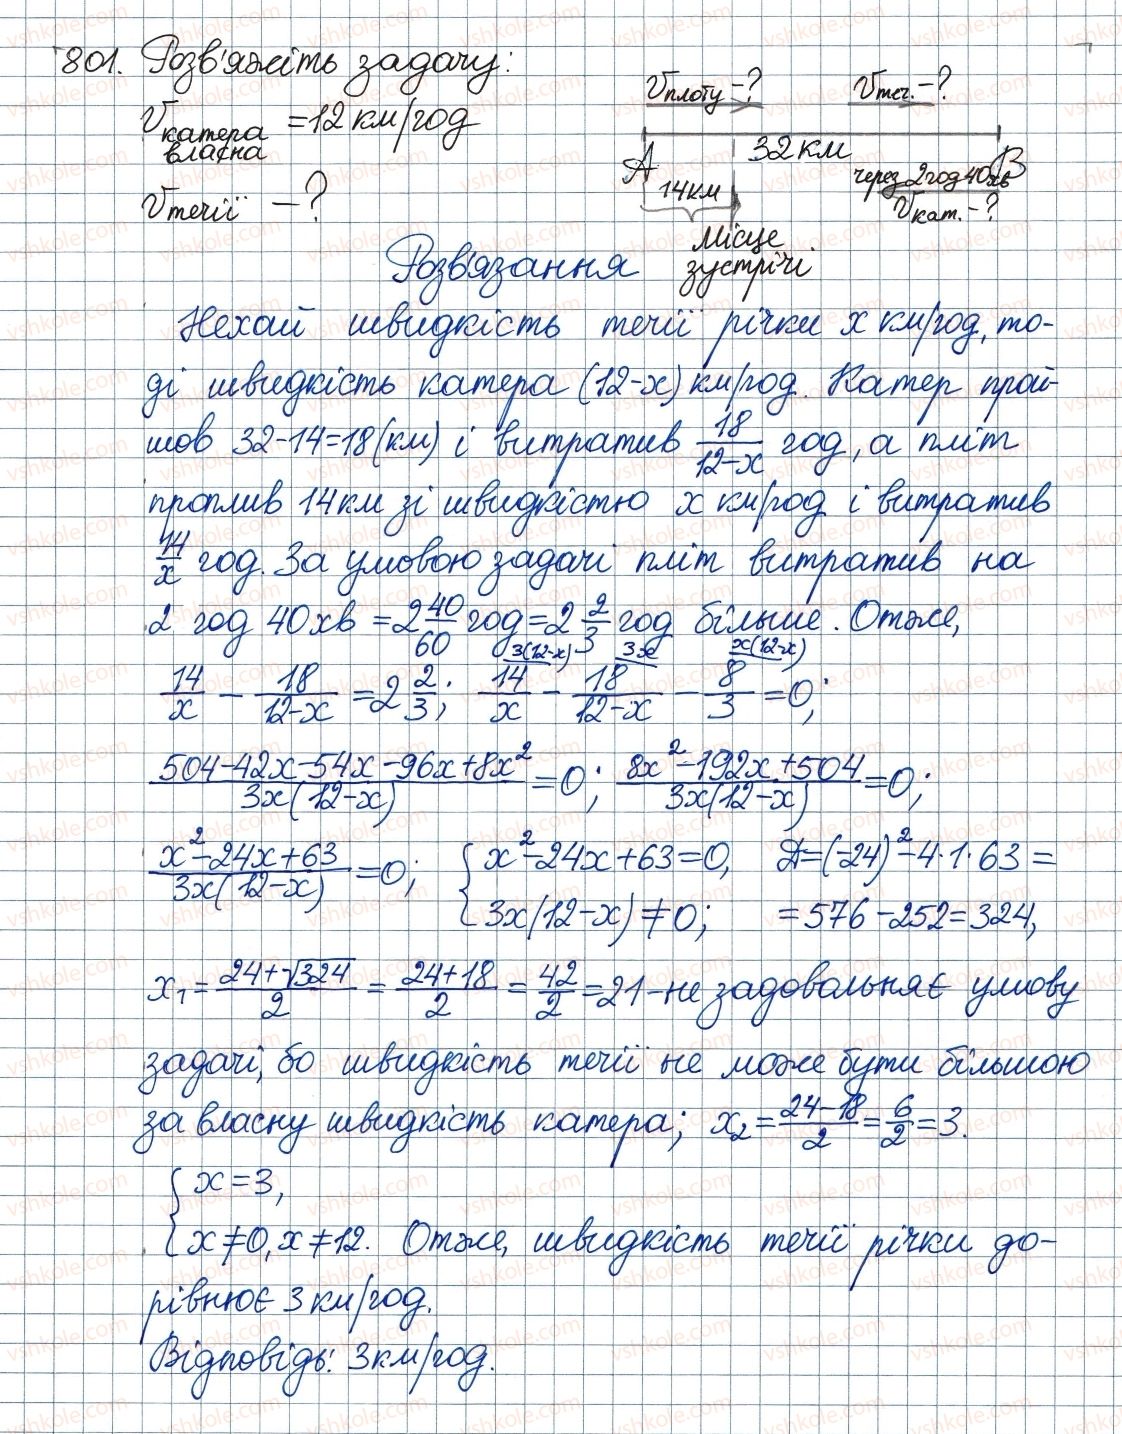 801. Розв'яжіть задачу:
Vплоту -? Vтеч. -?
Vкатера власна = 12 км/год
32 км
A B
14 км через 2 год 40 хв
Vтечії - ? Vкат. -?
місце
зустрічі
Розв'язання
Нехай швидкість течії річки x км/год, то-
ді швидкість катера (12-x) км/год. Катер прой-
шов 32-14=18 (км) і витратив 18/(12-x) год, а пліт
проплив 14 км зі швидкістю x км/год і витратив
14/x год. За умовою задачі пліт витратив на
2 год 40 хв = 2 40/60 год = 2 2/3 год більше. Отже,
3(12-x) 3x x(12-x)
14/x - 18/(12-x) = 2 2/3; 14/x - 18/(12-x) - 8/3 = 0;
(504-42x-54x-96x+8x²)/(3x(12-x)) = 0; (8x²-192x+504)/(3x(12-x)) = 0;
(x²-24x+63)/(3x(12-x)) = 0; { x²-24x+63=0, Д=(-24)²-4·1·63=
3x(12-x)≠0; =576-252=324,
x₁ = (24+√324)/2 = (24+18)/2 = 42/2 = 21 - не задовольняє умову
задачі, бо швидкість течії не може бути більшою
за власну швидкість катера; x₂ = (24-18)/2 = 6/2 = 3.
{ x=3,
x≠0, x≠12. Отже, швидкість течії річки до-
рівнює 3 км/год.
Відповідь: 3 км/год.